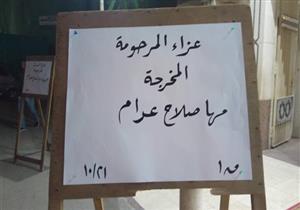 عزاء المرحومة
المخرجة
مها صلاح عرام
ق ١
١٠/٢١